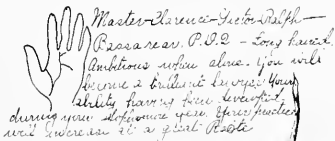 Master Clarence Victor Ralph—
Bassarear. P.D.Q — Long haired.
Ambitious when alone. You will
become a brilliant lawyer. Your
ability having been developed
during your sophomore year. Your practice
will increase at a great Rate